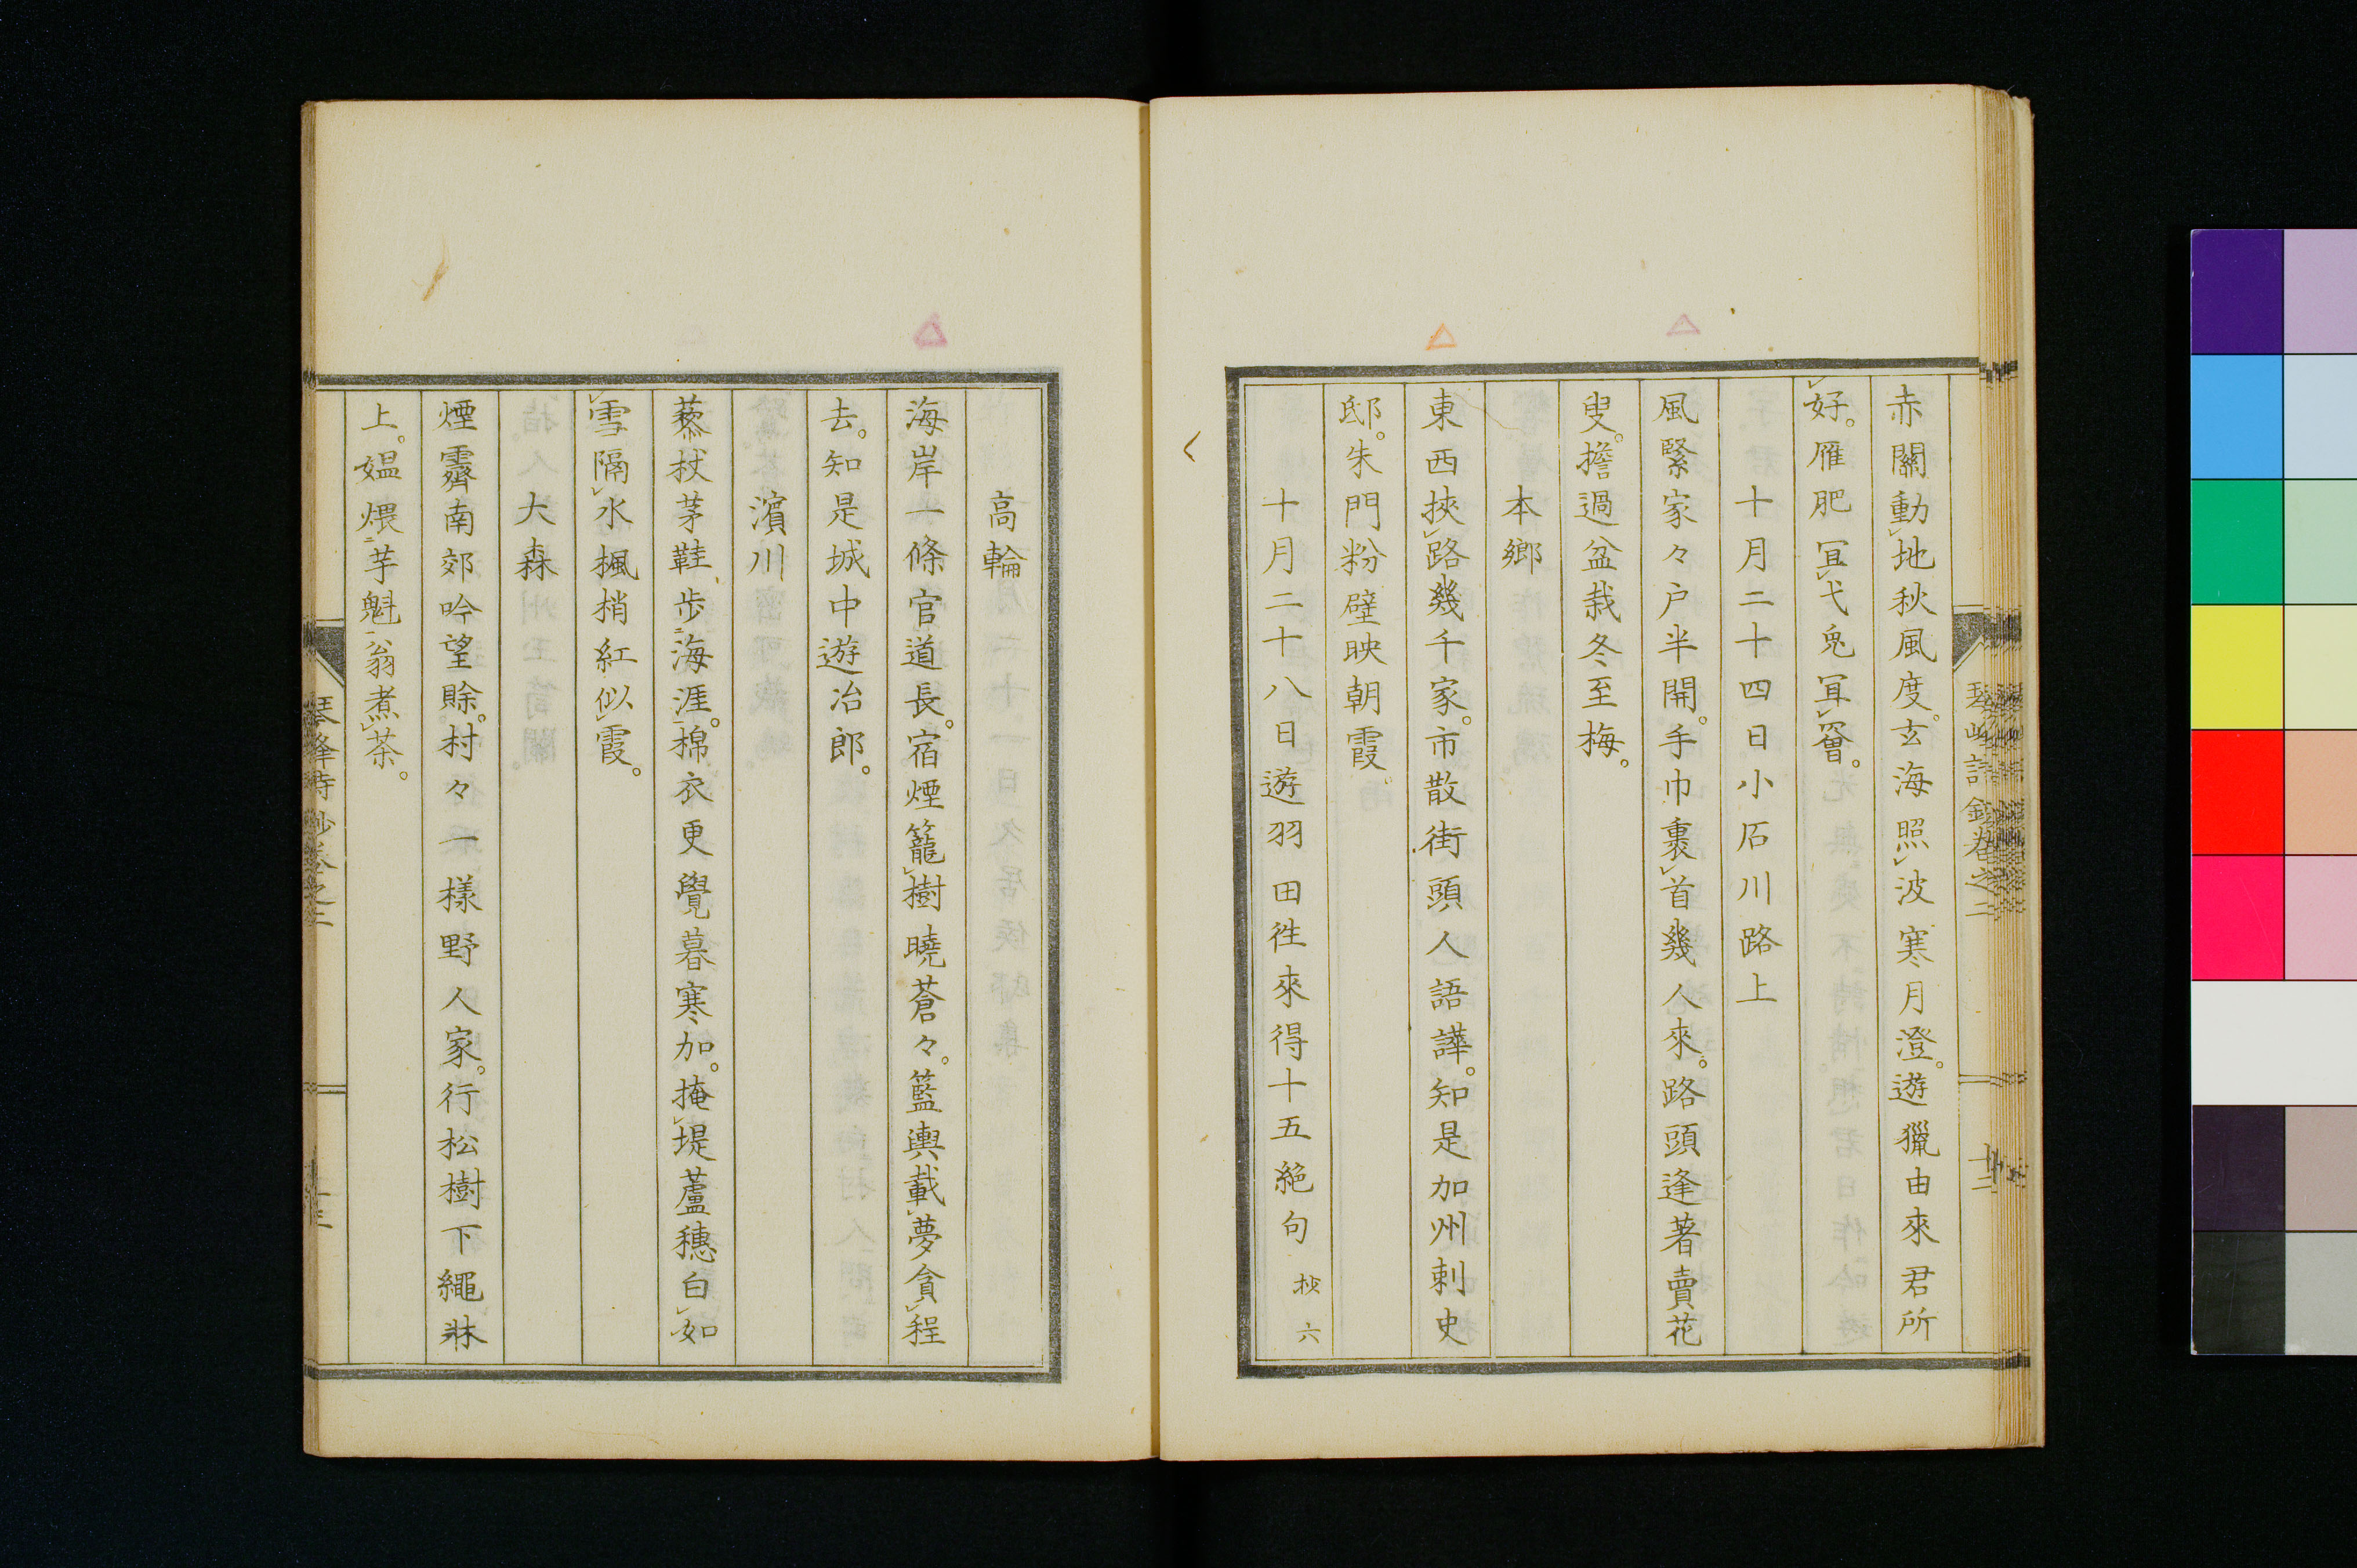 赤關動レ地秋風度。玄海照レ波寒月澄。遊獵由來君所
レ好。雁肥冝レ弋兎冝レ罾。
十月二十四日小石川路上
風緊家々戸半開。手巾裏レ首幾人來。路頭逢著賣花
叟。擔過盆栽冬至梅。
本鄉
東西挾レ路幾千家。市散街頭人語譁。知是加州刺史
邸。朱門粉壁映朝霞。
十月二十八日遊羽田徃來得十五絶句 抄六
高輪
海岸一條官道長。宿煙籠レ樹曉蒼々。籃輿載レ夢貪レ程
去。知是城中遊冶郎。
濱川
藜杖芧鞋步二海涯一。棉衣更覺暮寒加。掩レ堤蘆穗白レ如
レ雪。隔レ水楓梢紅似レ霞。
大森
煙霽南郊吟望賖。村々一樣野人家。行松樹下繩牀
上。媼煨二芋魁一翁煮レ茶。
琴峰詩鈔卷之二